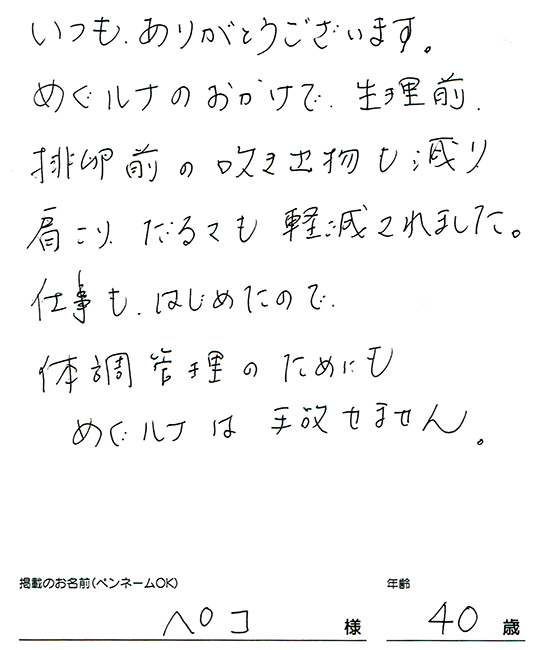 いつも、ありがとうございます。
めぐルナのおかげで、生理前、
排卵前の吹き出物も減り
肩こり、だるさも軽減されました。
仕事も、はじめたので、
体調管理のためにも
めぐルナは手放せません。
掲載のお名前(ペンネームOK) 年齢
ペコ 様 40 歳